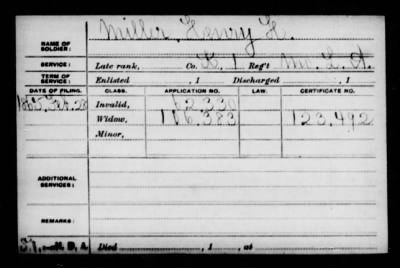 NAME OF SOLDIER: Miller, Henry H.
SERVICE: Late rank, Co. K, 1 Reg't Mo. L. A.
TERM OF SERVICE: Enlisted , 1 Discharged , 1
DATE OF FILING. CLASS. APPLICATION NO. LAW. CERTIFICATE NO.
1865, Feb. 28 Invalid, 62.330
Widow, 106.383 123.492
Minor,
ADDITIONAL SERVICES:
REMARKS:
Died , 1 , at